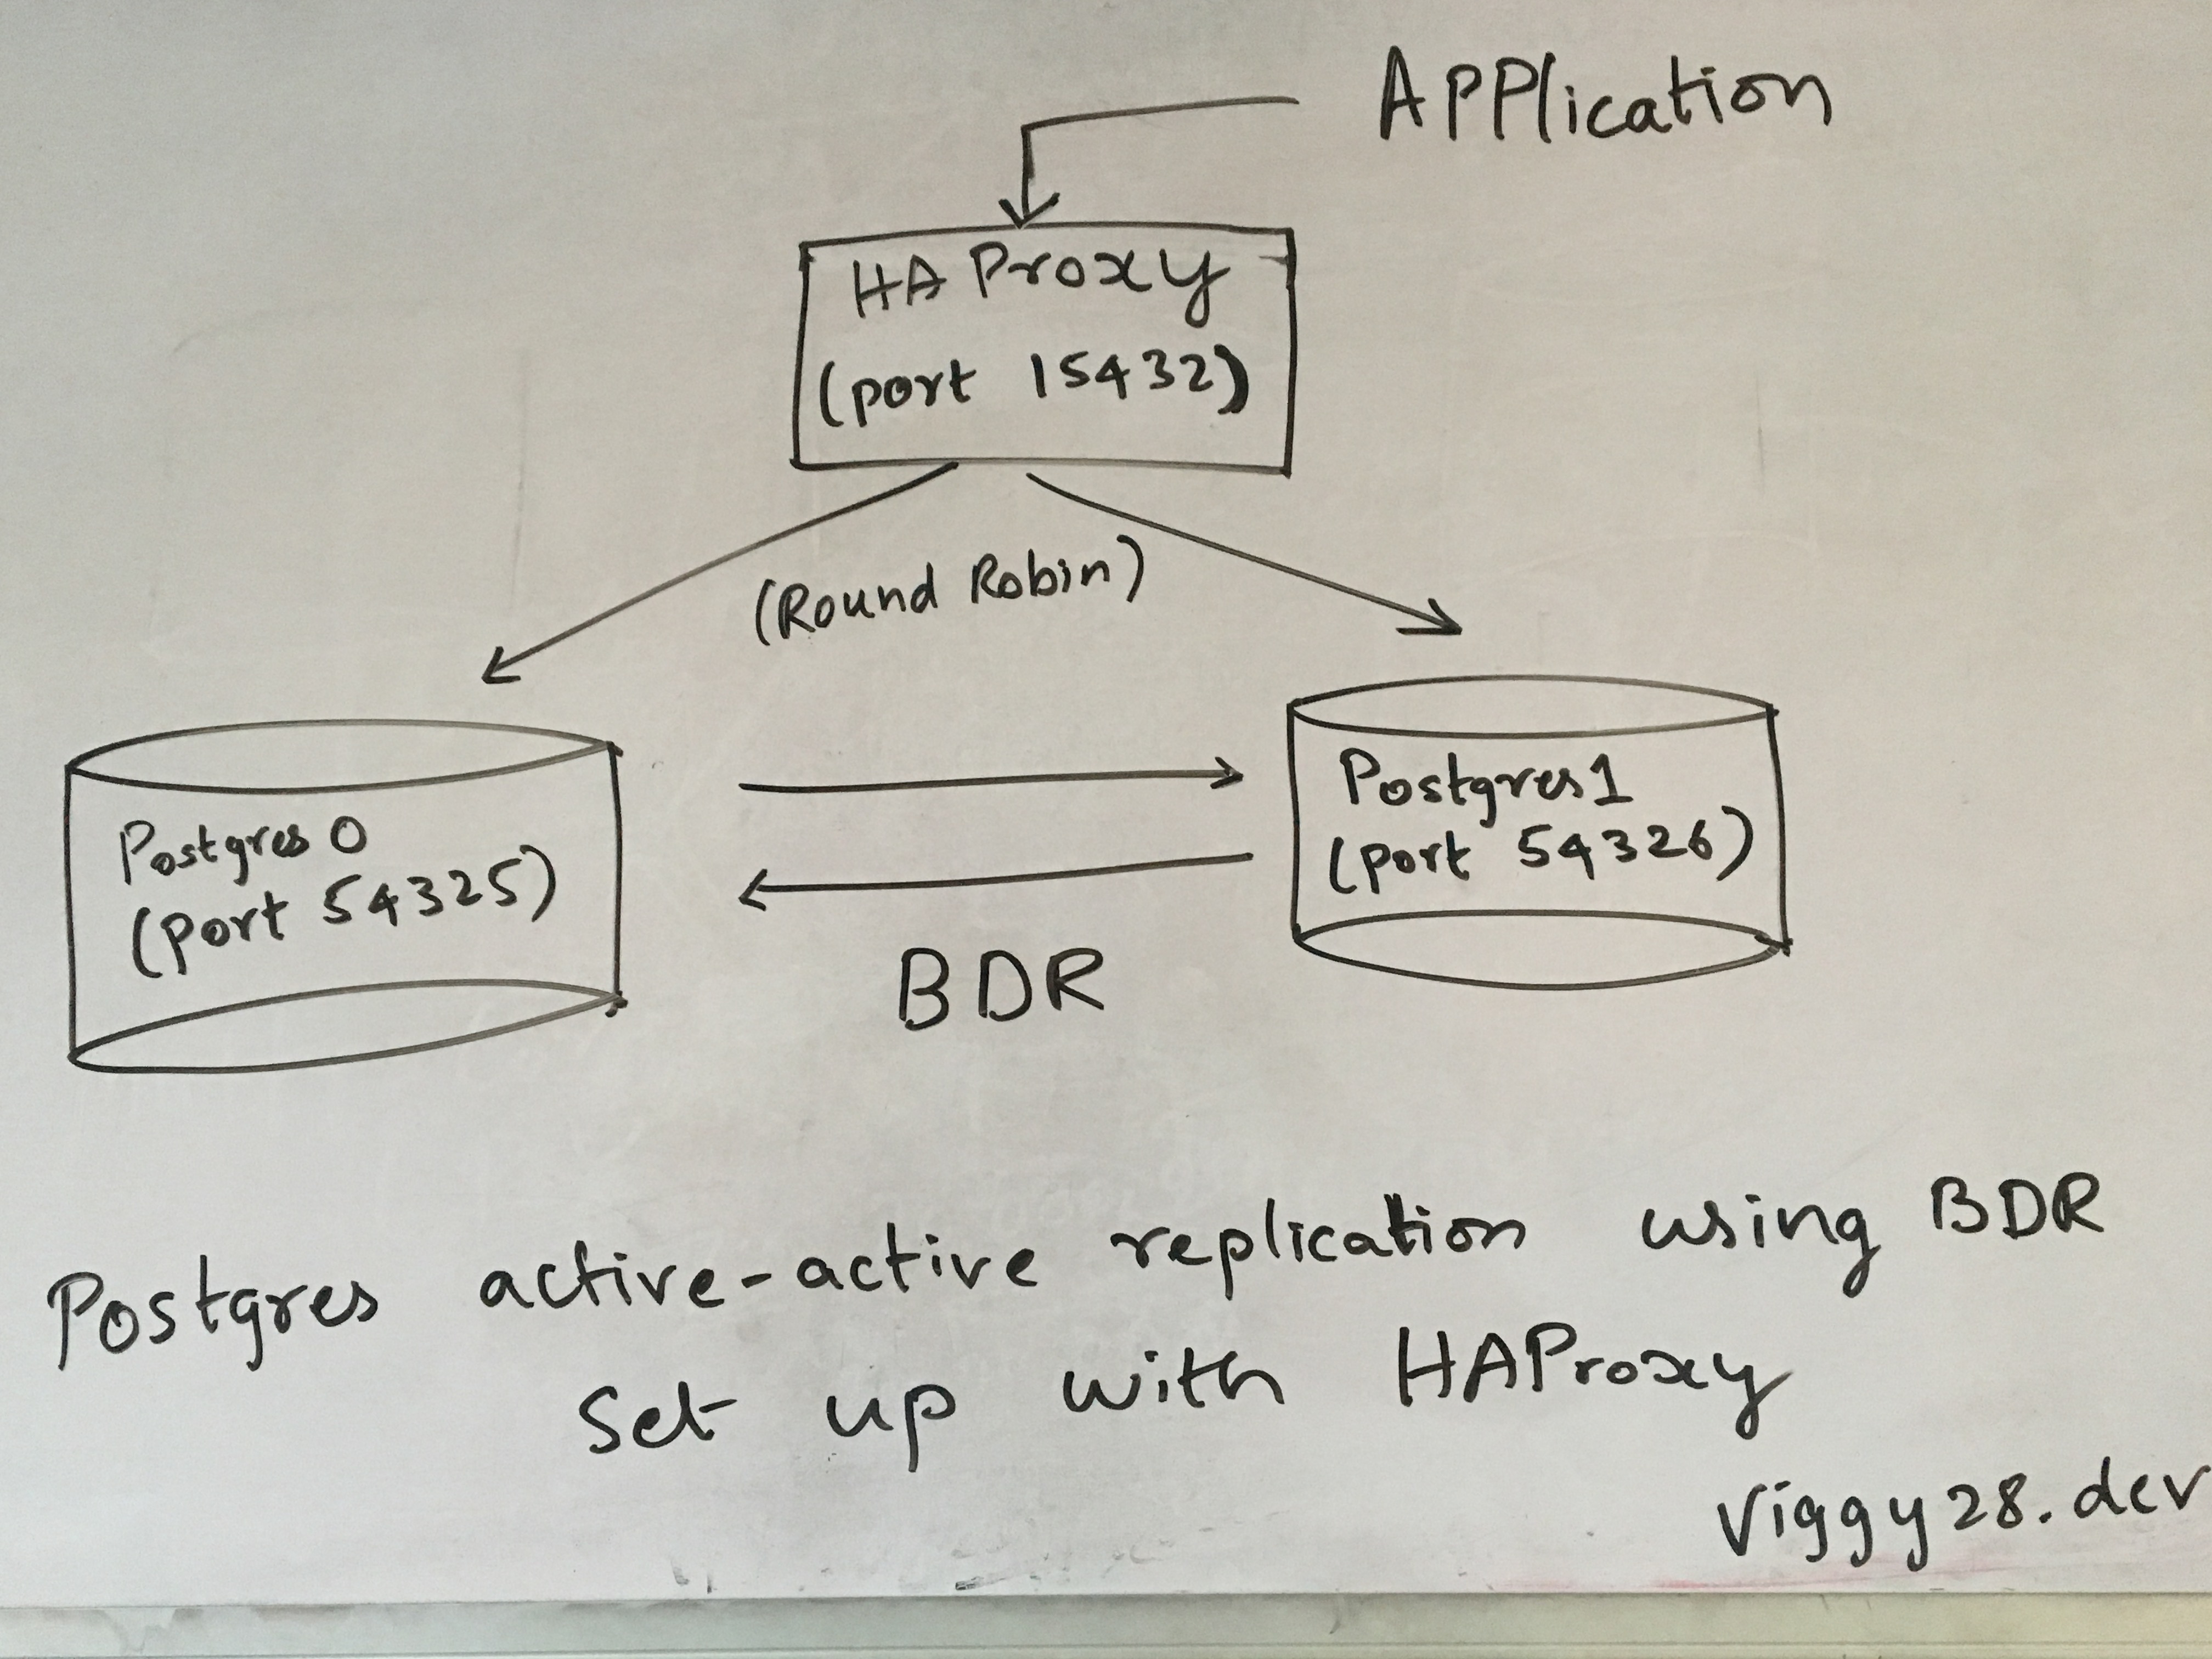 APPlication
HA Proxy
(port 15432)
(Round Robin)
Postgres 0
(port 54325)
Postgres 1
(port 54326)
BDR
Postgres active-active replication using BDR
Set up with HAProxy
Viggy28.dev